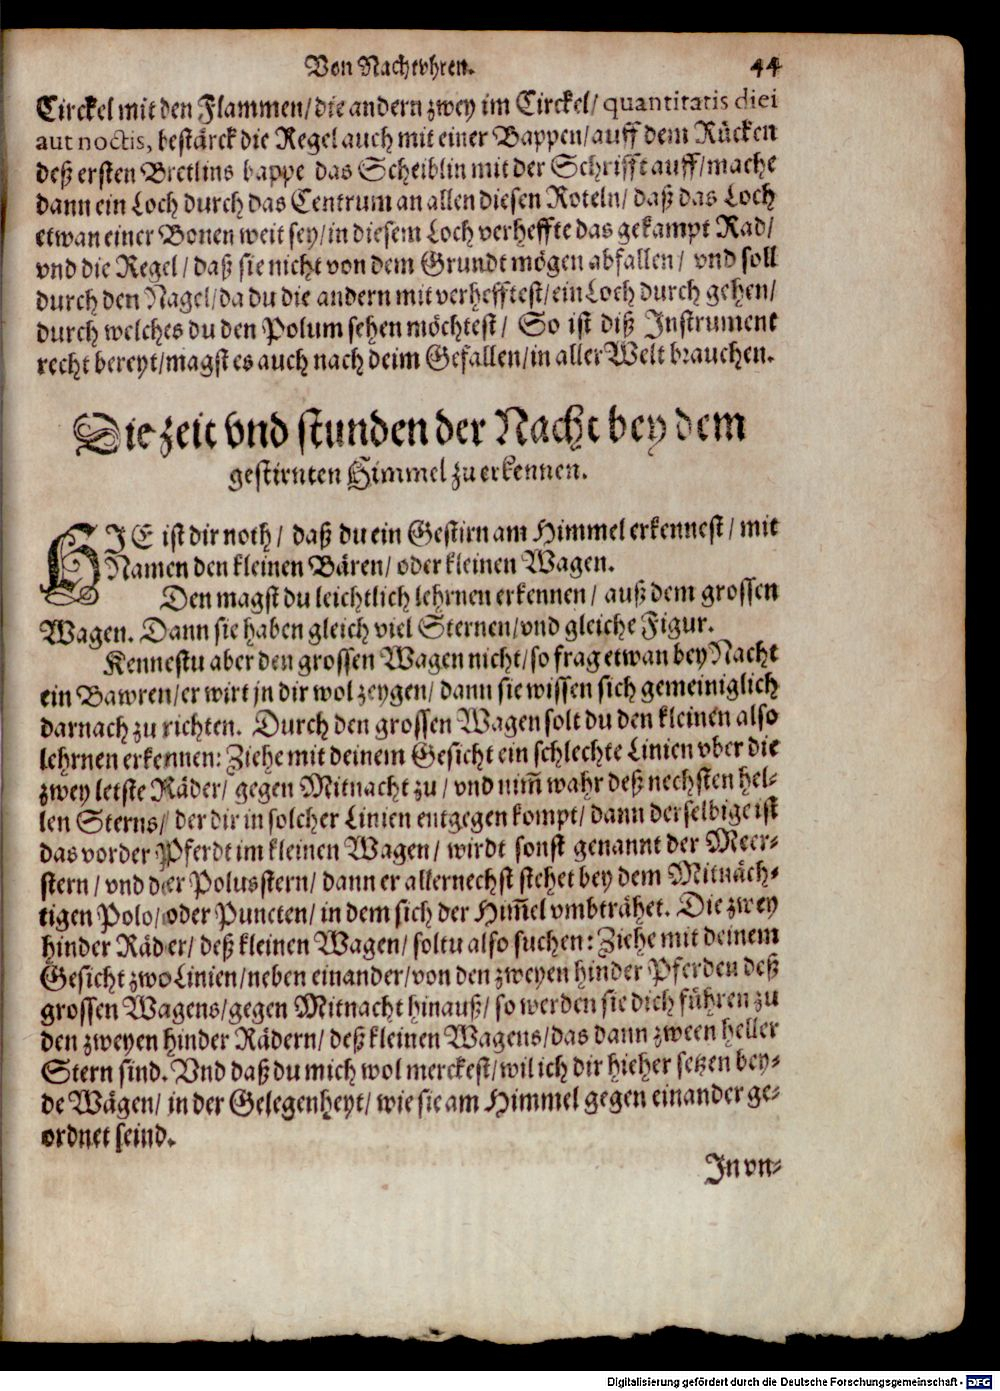 Von Nachtvhren. 44
Circkel mit den Flammen/ die andern zwey im Circkel/ quantitatis diei
aut noctis, bestärck die Regel auch mit einer Bappen/ auff dem Rücken
deß ersten Bretlins bappe das Scheiblin mit der Schrifft auff/ mache
dann ein Loch durch das Centrum an allen diesen Roteln/ daß das Loch
etwan einer Bonen weit sey/ in diesem Loch verheffte das gekampt Rad/
vnd die Regel/ daß sie nicht von dem Grundt mögen abfallen/ vnd soll
durch den Nagel/ da du die andern mit verhefftest/ ein Loch durch gehen/
durch welches du den Polum sehen möchtest/ So ist diß Instrument
recht bereyt/ magst es auch nach deim Gefallen/ in aller Welt brauchen.
Die zeit vnd stunden der Nacht bey dem
gestirnten Himmel zu erkennen.
HIE ist dir noth/ daß du ein Gestirn am Himmel erkennest/ mit
Namen den kleinen Bären/ oder kleinen Wagen.
Den magst du leichtlich lehrnen erkennen/ auß dem grossen
Wagen. Dann sie haben gleich viel Sternen/ vnd gleiche Figur.
Kennestu aber den grossen Wagen nicht/ so frag etwan bey Nacht
ein Bawren/ er wirt jn dir wol zeygen/ dann sie wissen sich gemeiniglich
darnach zu richten. Durch den grossen Wagen solt du den kleinen also
lehrnen erkennen: Ziehe mit deinem Gesicht ein schlechte Linien vber die
zwey letste Räder/ gegen Mitnacht zu/ vnd nim̃ wahr deß nechsten hel-
len Sterns/ der dir in solcher Linien entgegen kompt/ dann derselbige ist
das vorder Pferdt im kleinen Wagen/ wirdt sonst genannt der Meer-
stern/ vnd der Polusstern/ dann er allernechst stehet bey dem Mitnäch-
tigen Polo/ oder Puncten/ in dem sich der Him̃el vmbträhet. Die zwey
hinder Räder/ deß kleinen Wagen/ soltu also suchen: Ziehe mit deinem
Gesicht zwo Linien/ neben einander/ von den zweyen hinder Pferden deß
grossen Wagens/ gegen Mitnacht hinauß/ so werden sie dich führen zu
den zweyen hinder Rädern/ deß kleinen Wagens/ das dann zween heller
Stern sind. Vnd daß du mich wol merckest/ wil ich dir hieher setzen bey-
de Wägen/ in der Gelegenheyt/ wie sie am Himmel gegen einander ge-
ordnet seind.
In vn-
Digitalisierung gefördert durch die Deutsche Forschungsgemeinschaft - DFG